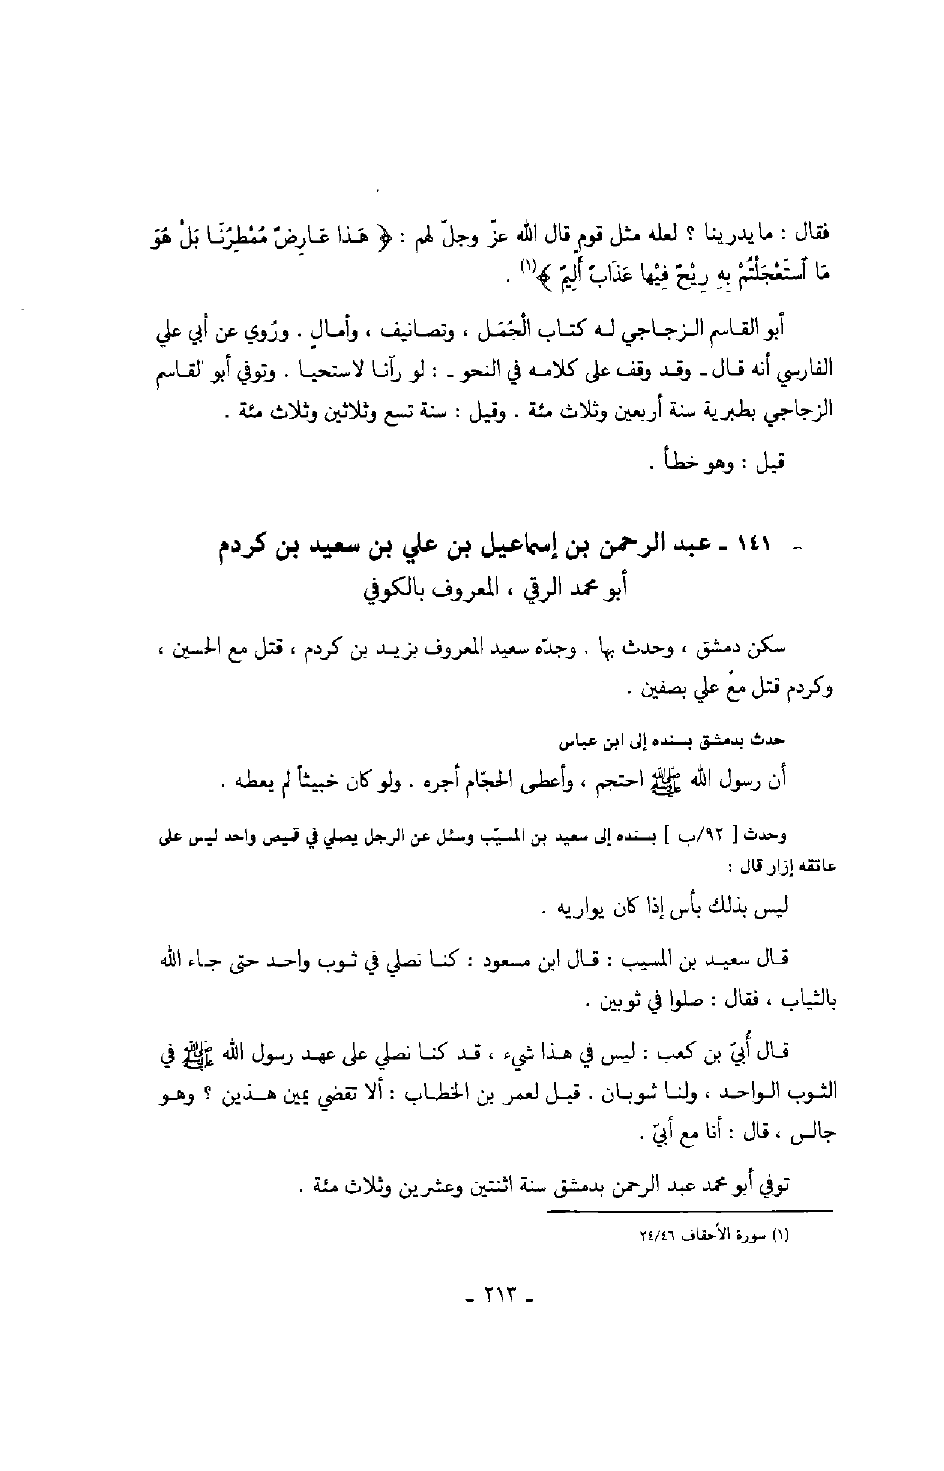 فقال : ما يدرينا ؟ لعله مثل قوم قال الله عزّ وجلّ لهم : ﴿ هَذا عَارِضٌ مُمْطِرُنَا بَلْ هُوَ
مَا ٱسْتَعْجَلْتُمْ بِهِ رِيْحٌ فِيْها عَذَابٌ أَلِيمٌ ﴾(١) .
أبو القاسم الزجاجي له كتاب الْجُمَل ، وتصانيف ، وأمالٍ . ورُوي عن أبي علي
الفارسي أنه قال ـ وقد وقف على كلامه في النحو ـ : لو رآنا لاستحيا . وتوفي أبو القاسم
الزجاجي بطبرية سنة أربعين وثلاث مئة . وقيل : سنة تسع وثلاثين وثلاث مئة .
قيل : وهو خطأ .
ـ ١٤١ ـ عبد الرحمن بن إسماعيل بن علي بن سعيد بن كردم
أبو محمد الرقي ، المعروف بالكوفي
سكن دمشق ، وحدث بها . وجدّه سعيد المعروف بزيد بن كردم ، قتل مع الحسين ،
وكردم قتل مع علي بصفين .
حدث بدمشق بسنده إلى ابن عباس
أن رسول الله ﷺ احتجم ، وأعطى الحجّام أجره . ولو كان خبيثاً لم يعطه .
وحدث [ ٩٢/ب ] بسنده إلى سعيد بن المسيّب وسئل عن الرجل يصلي في قميص واحد ليس على
عاتقه إزار قال :
ليس بذلك بأس إذا كان يواريه .
قال سعيد بن المسيب : قال ابن مسعود : كنا نصلي في ثوب واحد حتى جاء الله
بالثياب ، فقال : صلوا في ثوبين .
قال أُبيّ بن كعب : ليس في هذا شيء ، قد كنا نصلي على عهد رسول الله ﷺ في
الثوب الواحد ، ولنا ثوبان . قيل لعمر بن الخطاب : ألا تقضي بين هذين ؟ وهو
جالس ، قال : أنا مع أبيّ .
توفي أبو محمد عبد الرحمن بدمشق سنة اثنتين وعشرين وثلاث مئة .
(١) سورة الأحقاف ٢٤/٤٦
ـ ٢١٣ ـ